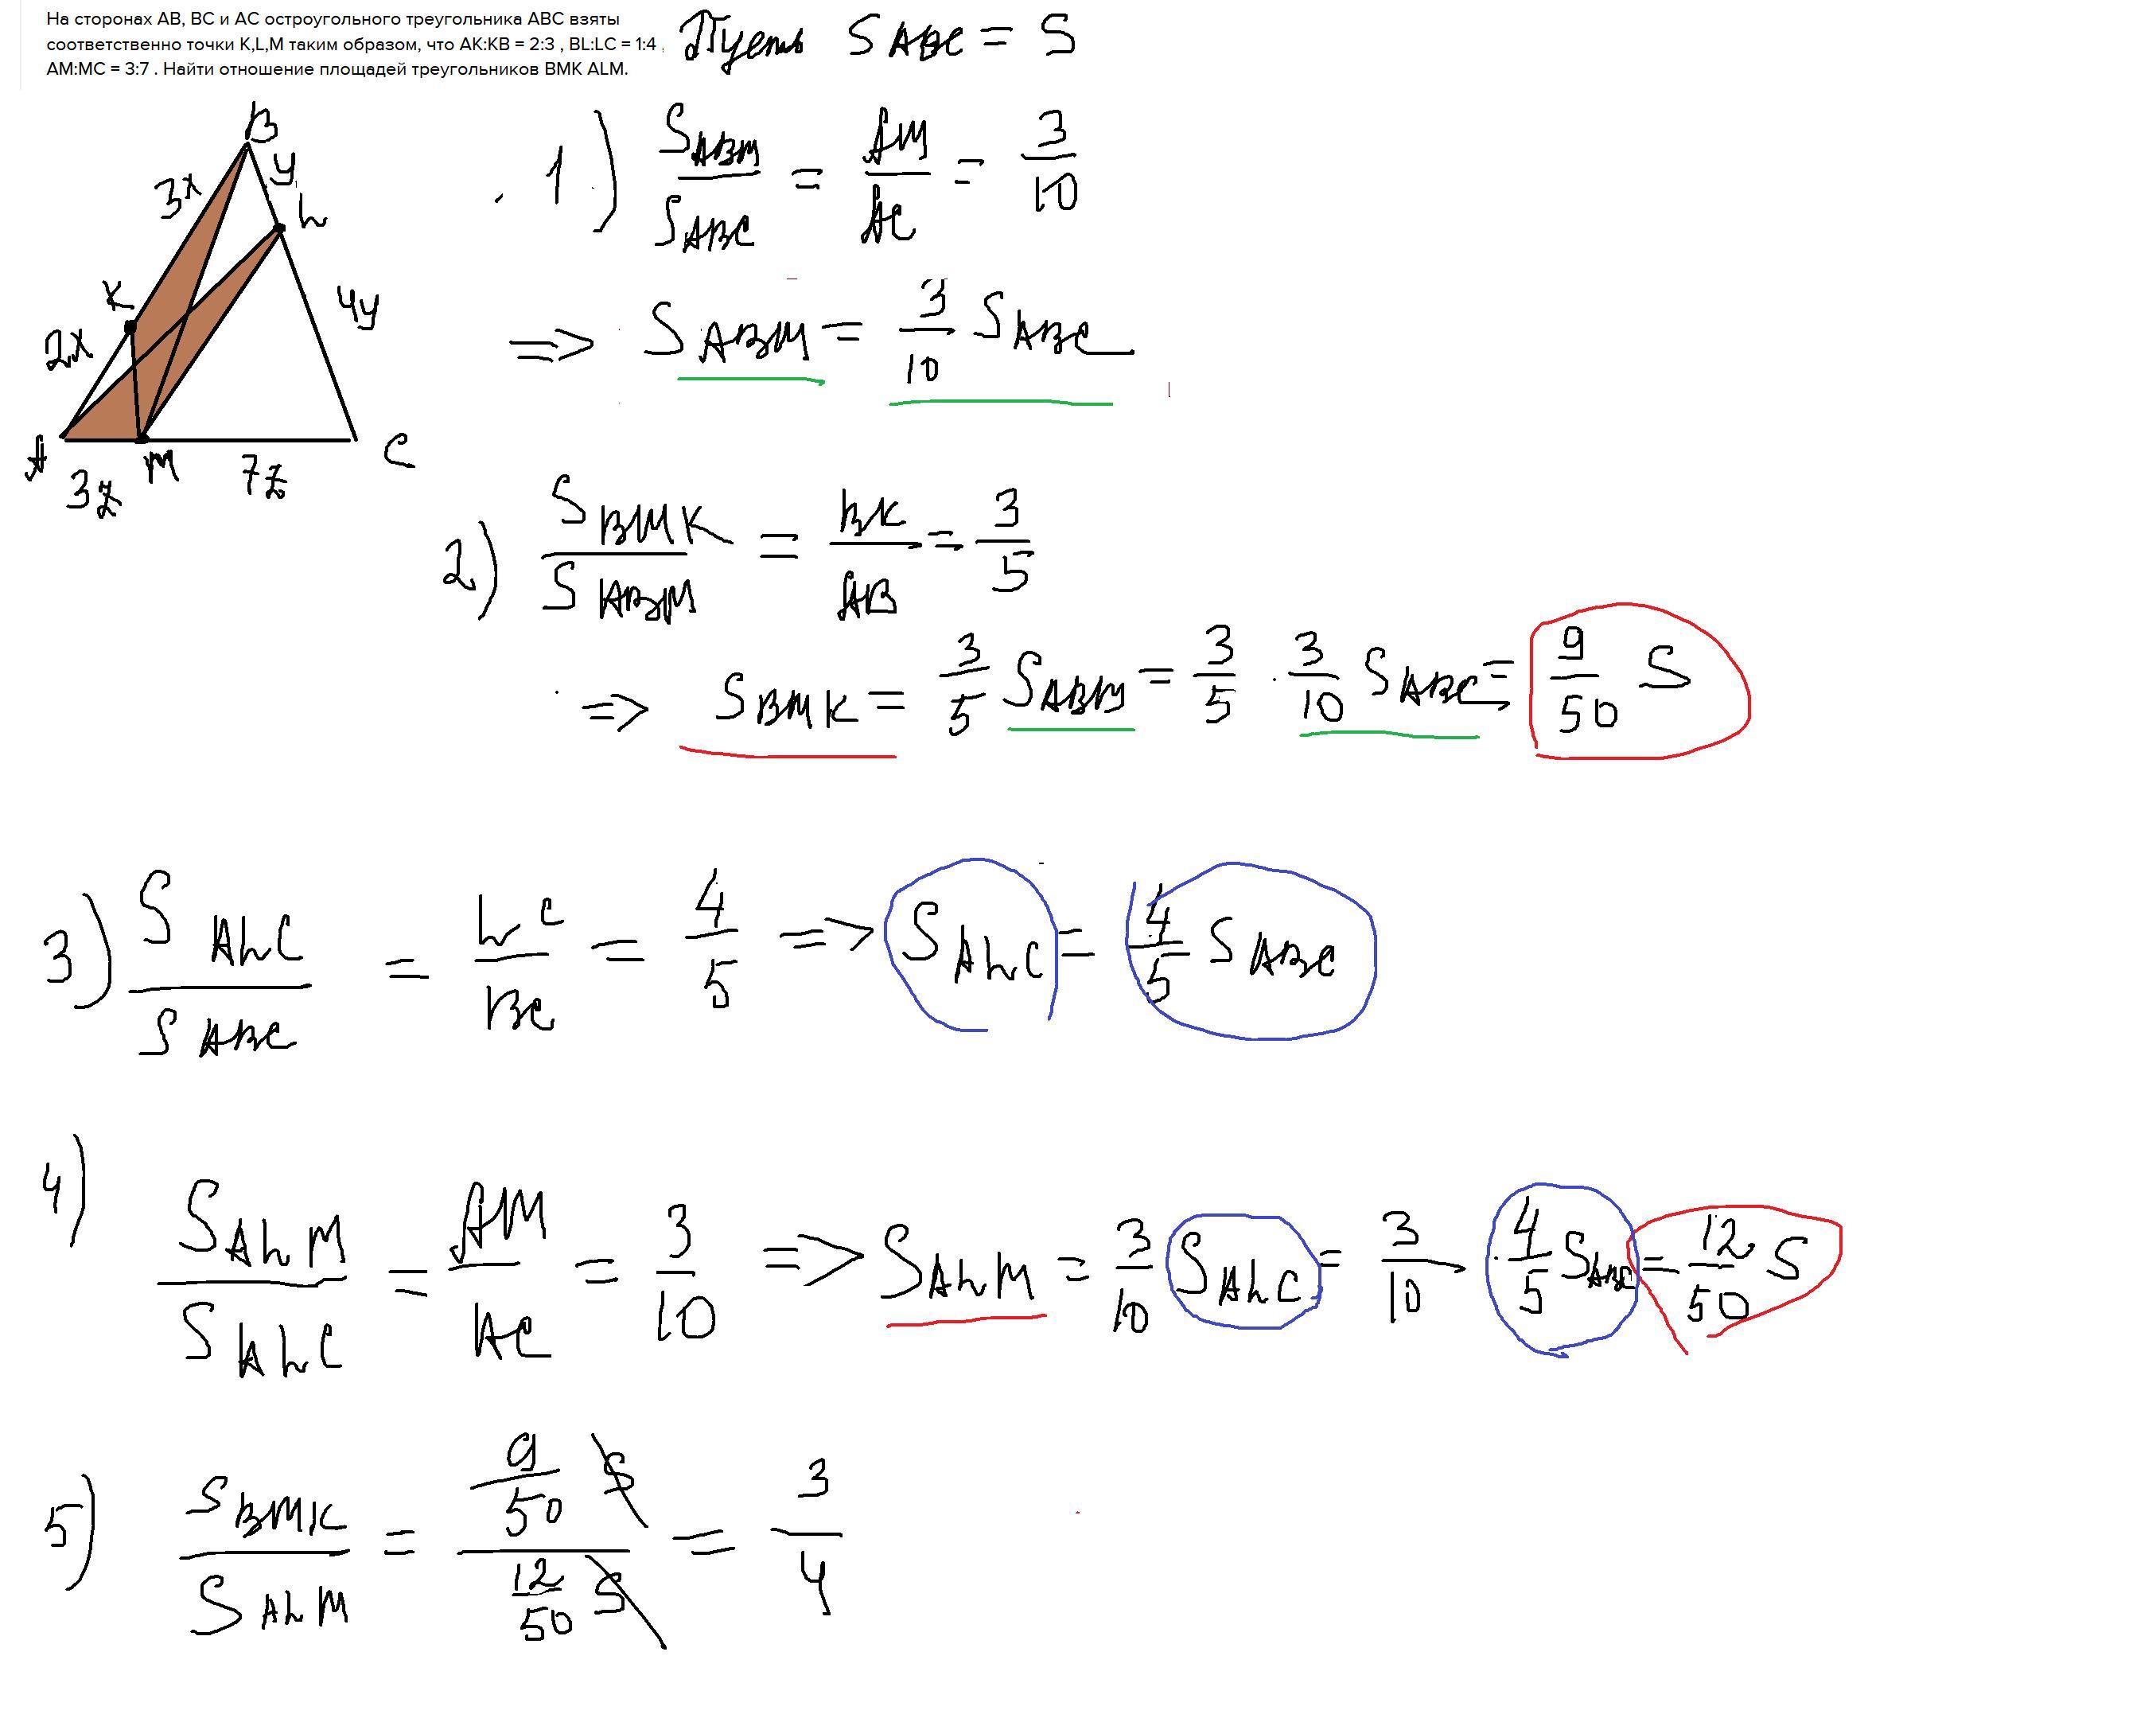 На сторонах AB, BC и AC остроугольного треугольника ABC взяты
соответственно точки K,L,M таким образом, что AK:KB = 2:3 , BL:LC = 1:4 ,
AM:MC = 3:7 . Найти отношение площадей треугольников BMK ALM.
Пусть S ABC = S
B
3x
y
L
K
4y
2x
A
M
C
3z
7z
1) S ABM / S ABC = AM / AC = 3/10
=> S ABM = 3/10 S ABC
2) S BMK / S ABM = BK / AB = 3/5
=> S BMK = 3/5 S ABM = 3/5 · 3/10 S ABC = 9/50 S
3) S ALC / S ABC = LC / BC = 4/5 => S ALC = 4/5 S ABC
4) S ALM / S ALC = AM / AC = 3/10 => S ALM = 3/10 S ALC = 3/10 · 4/5 S ABC = 12/50 S
5) S BMK / S ALM = 9/50 S / 12/50 S = 3/4